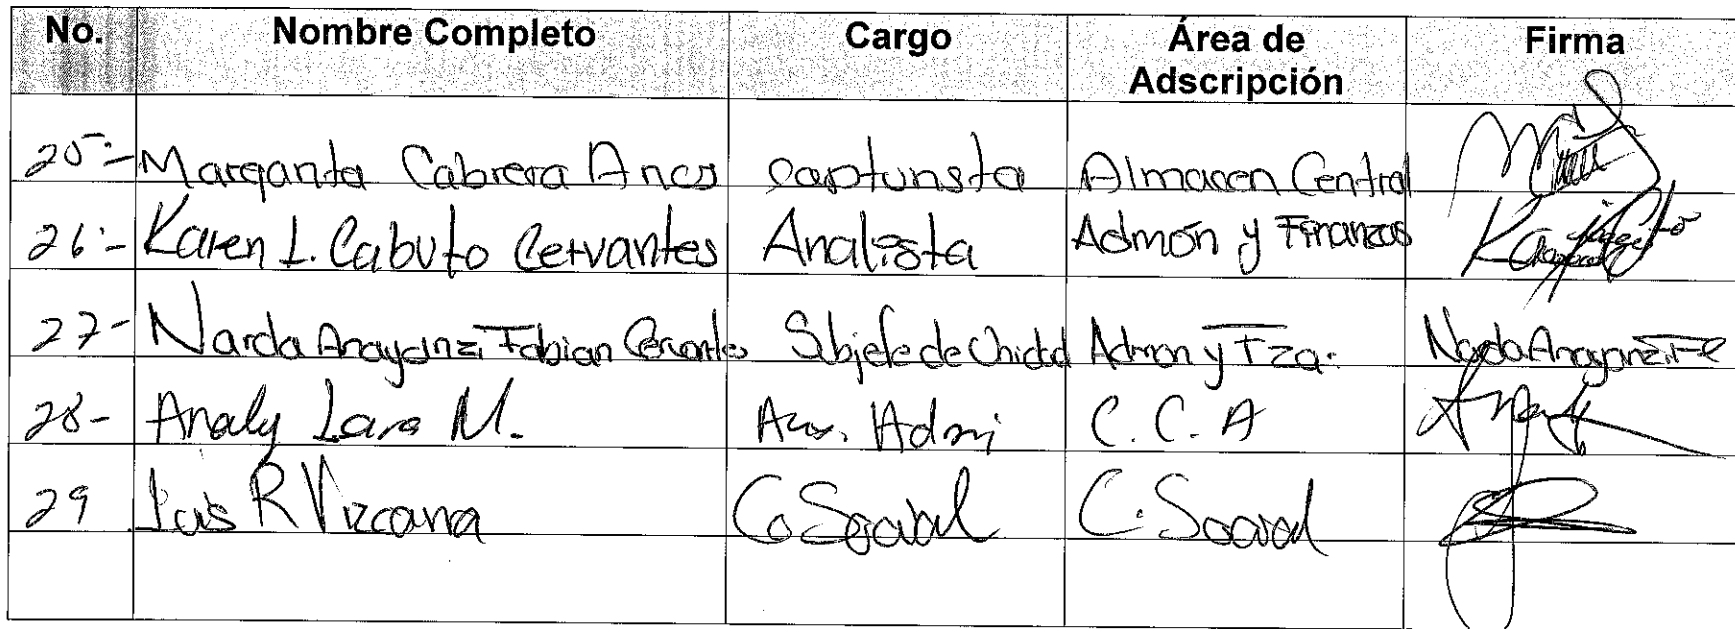 No. Nombre Completo Cargo Área de Adscripción Firma
25.- Margarita Cabrera Captunsta Almacen Central
26.- Karen L. Cabuto Cervantes Analista Admón y Finanzas
27- Narda Anayanzi Fabian Cervantes Subjefe de Unidad Admon y Fza. Narda Anayanzi F C
28- Analy Lara M. Aux. Admi C. C. A
29 Luis R Vizcarra C. Social